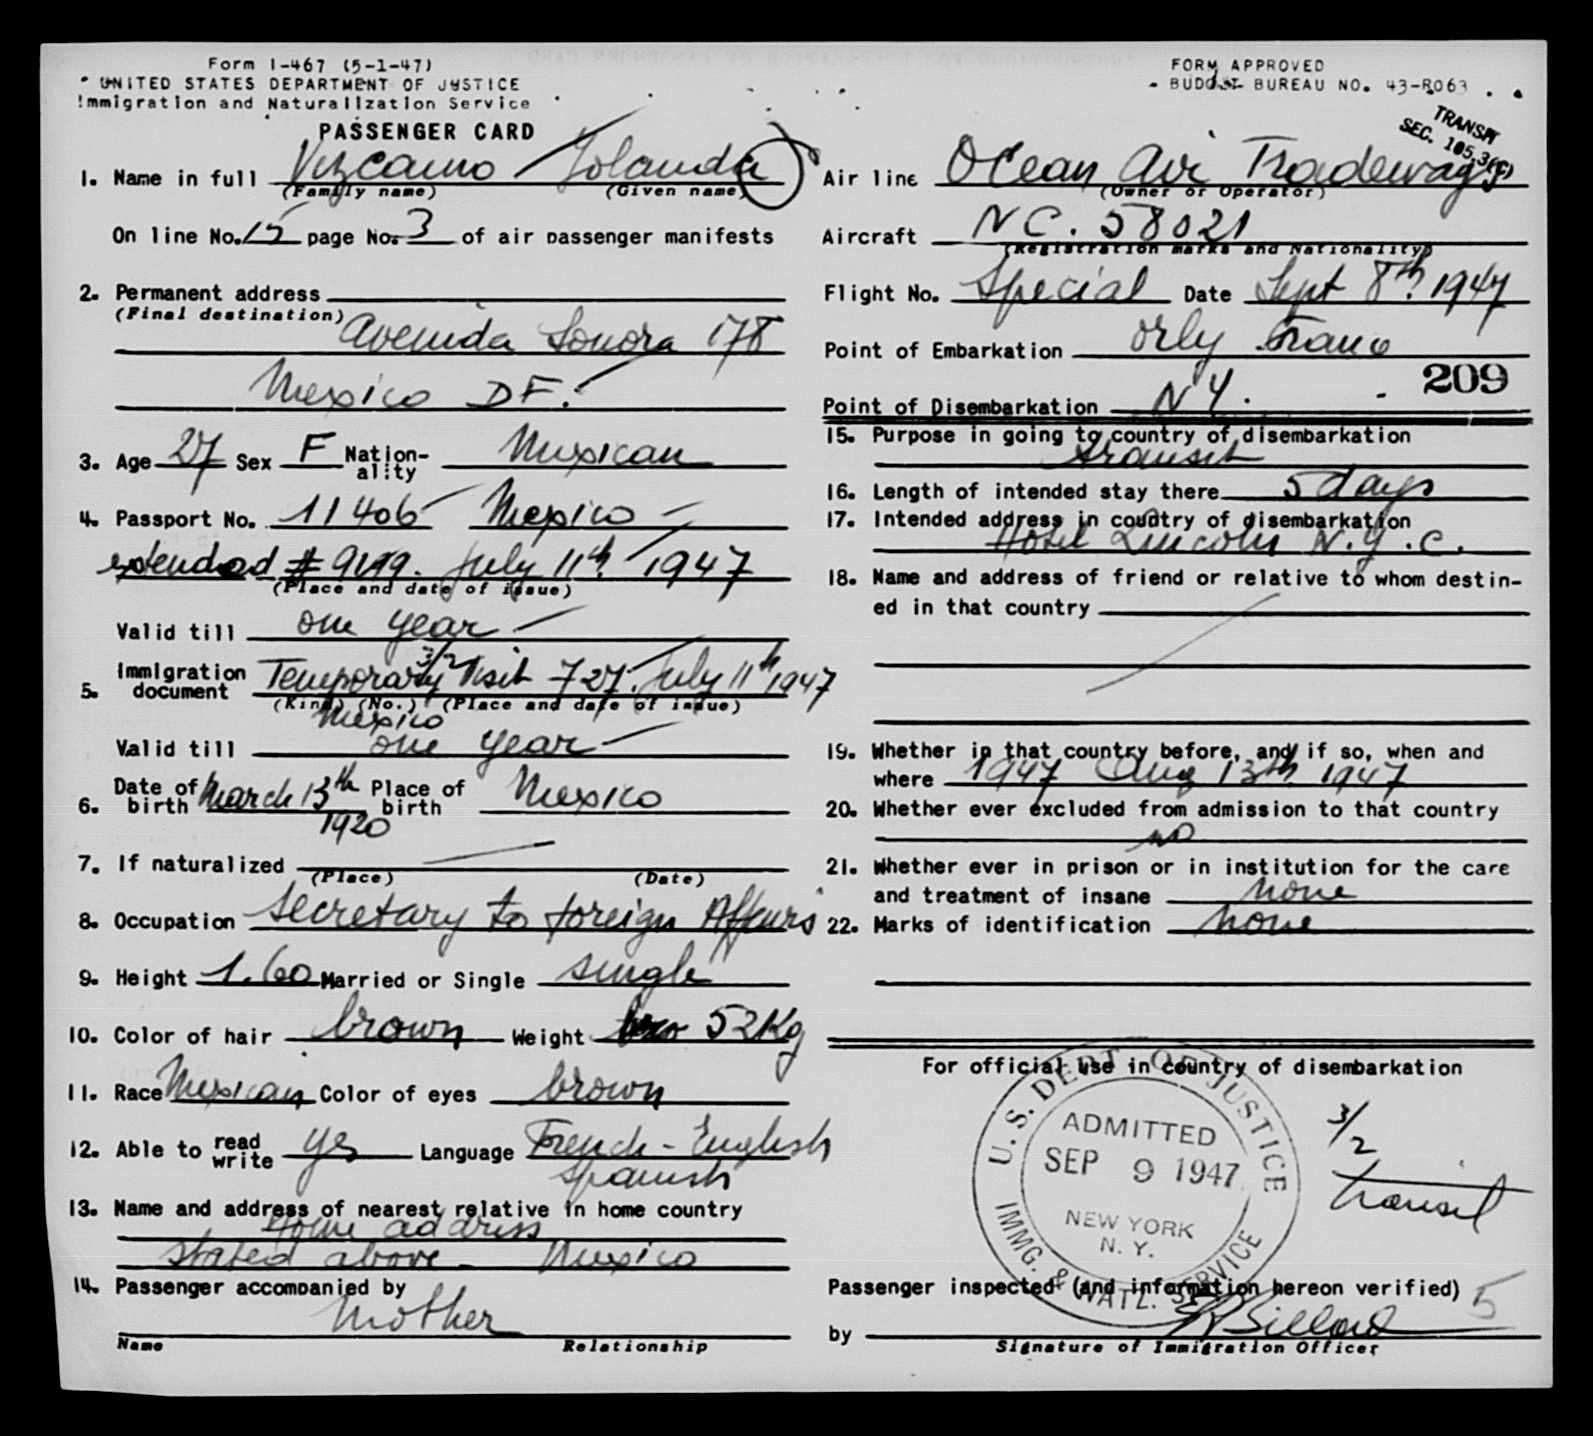 Form I-467 (5-1-47)
UNITED STATES DEPARTMENT OF JUSTICE
Immigration and Naturalization Service
PASSENGER CARD
1. Name in full Vizcaino Yolanda
(Family name) (Given name)
On line No. 15 page No. 3 of air passenger manifests
2. Permanent address
(Final destination)
Avenida Sonora 178
Mexico DF.
3. Age 27 Sex F Nation-
ality Mexican
4. Passport No. 11406 Mexico
extended # July 11th 1947
(Place and date of issue)
Valid till one year
3/2
5. Immigration
document Temporary Visit 727. July 11th 1947
(Kind) (No.) (Place and date of issue)
Mexico
Valid till one year
6. Date of
birth March 13th Place of
birth Mexico
1920
7. If naturalized
(Place) (Date)
8. Occupation Secretary to foreign Affairs
9. Height 1.60 Married or Single single
10. Color of hair brown Weight 52 Kg
11. Race Mexican Color of eyes brown
12. Able to read
write yes Language French - English
Spanish
13. Name and address of nearest relative in home country
Home address
stated above - Mexico
14. Passenger accompanied by
Mother
Name Relationship
FORM APPROVED
BUDGET BUREAU NO. 43-R063
TRANSIT
SEC. 105.3(C)
Air line Ocean Air Tradeways
(Owner or Operator)
Aircraft NC. 58021
(Registration marks and Nationality)
Flight No. Special Date Sept 8th. 1947
Point of Embarkation Orly France
209
Point of Disembarkation N Y.
15. Purpose in going to country of disembarkation
transit
16. Length of intended stay there 5 days
17. Intended address in country of disembarkation
Hotel Lincoln N.Y.C.
18. Name and address of friend or relative to whom destin-
ed in that country
19. Whether in that country before, and if so, when and
where 1947 Aug 13th 1947
20. Whether ever excluded from admission to that country
no
21. Whether ever in prison or in institution for the care
and treatment of insane none
22. Marks of identification none
For official use in country of disembarkation
U.S. DEPT. OF JUSTICE
ADMITTED
SEP 9 1947
NEW YORK
N. Y.
IMMG. & NATZ. SERVICE
3/2
transit
Passenger inspected (and information hereon verified) 5
by
Signature of Immigration Officer